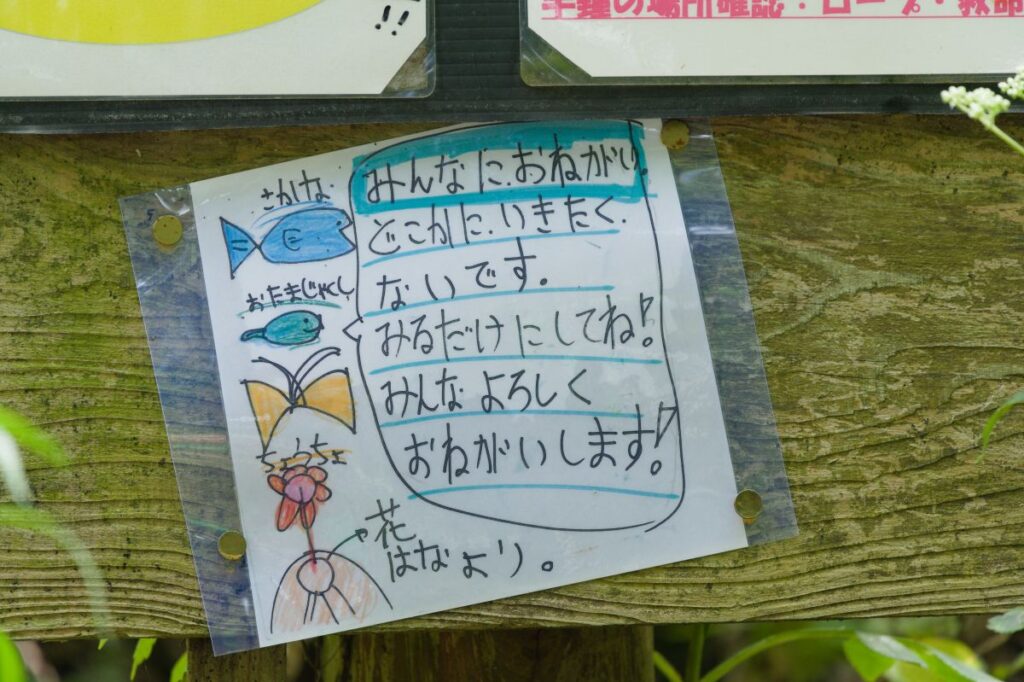 !!
手錘の場所確認・ロープ・救命
さかな
おたまじゃくし
ちょうちょ
みんなに.おねがい。
どこかに.いきたく.
ないです。
みるだけにしてね!
みんなよろしく
おねがいします!
花
はなより。